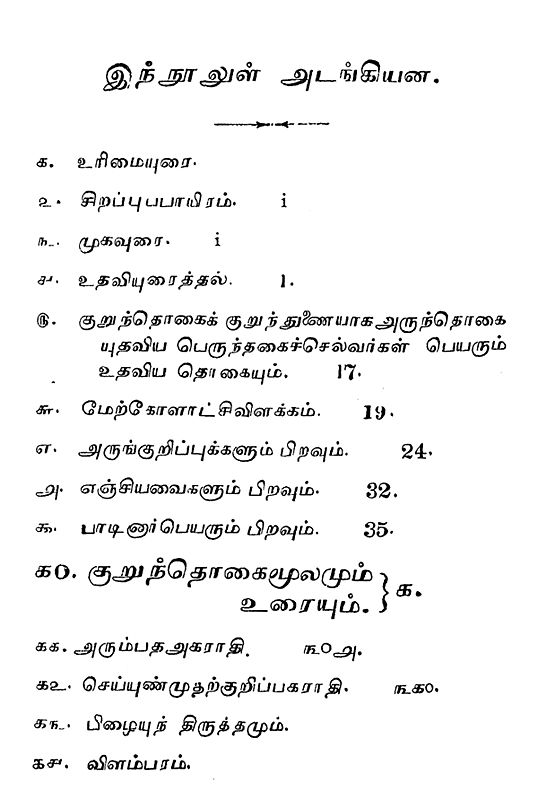 இந்நூலுள் அடங்கியன.
௧. உரிமையுரை.
௨. சிறப்புபபாயிரம். i
௩. முகவுரை. i
௪. உதவியுரைத்தல். 1.
௫. குறுந்தொகைக் குறுந்துணையாக அருந்தொகை
யுதவிய பெருந்தகைச்செல்வர்கள் பெயரும்
உதவிய தொகையும். 17.
௬. மேற்கோளாட்சிவிளக்கம். 19.
௭. அருங்குறிப்புக்களும் பிறவும். 24.
௮. எஞ்சியவைகளும் பிறவும். 32.
௯. பாடினார்பெயரும் பிறவும். 35.
௧0. குறுந்தொகைமூலமும்
உரையும். } ௧.
௧௧. அரும்பதஅகராதி. ௩0௮.
௧௨. செய்யுண்முதற்குறிப்பகராதி. ௩௧0.
௧௩. பிழையுந் திருத்தமும்.
௧௪. விளம்பரம்.